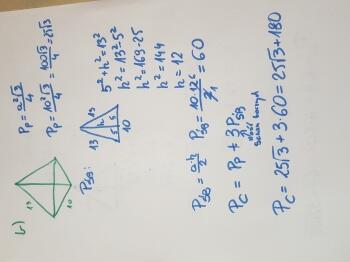 b)
13
10
Pp = a²√3/4
Pp = 10²√3/4 = 100√3/4 = 25√3
PSB:
13 13
h
5 5
10
5² + h² = 13²
h² = 13² - 5²
h² = 169 - 25
h² = 144
h = 12
PSB = a·h/2 PSB = 10·12⁶/2₁ = 60
PC = Pp + 3PSB
ilość
ścian bocznych
PC = 25√3 + 3·60 = 25√3 + 180